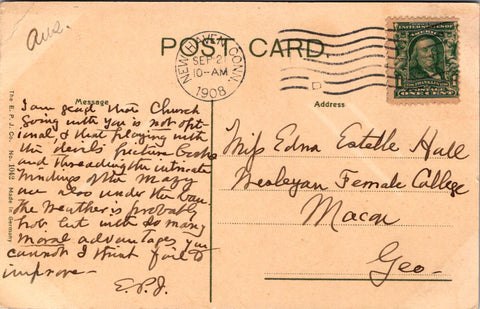 Ans.
POST CARD.
NEW HAVEN, CONN.
SEP 21
10-AM
1908
D
1
ONE CENT
The E. P. J. Co. No. 1042 Made in Germany
Message
I am glad that Church
going with you is not opt-
ional & that playing with
the devils' picture books
and threading the intricate
windings of the mazy
are also under the ban.
The weather is probably
hot but with so many
moral advantages you
cannot I trust fail to
improve-
E.P.J.
Address
Miss Edna Estelle Hall
Wesleyan Female College
Macon
Geo-